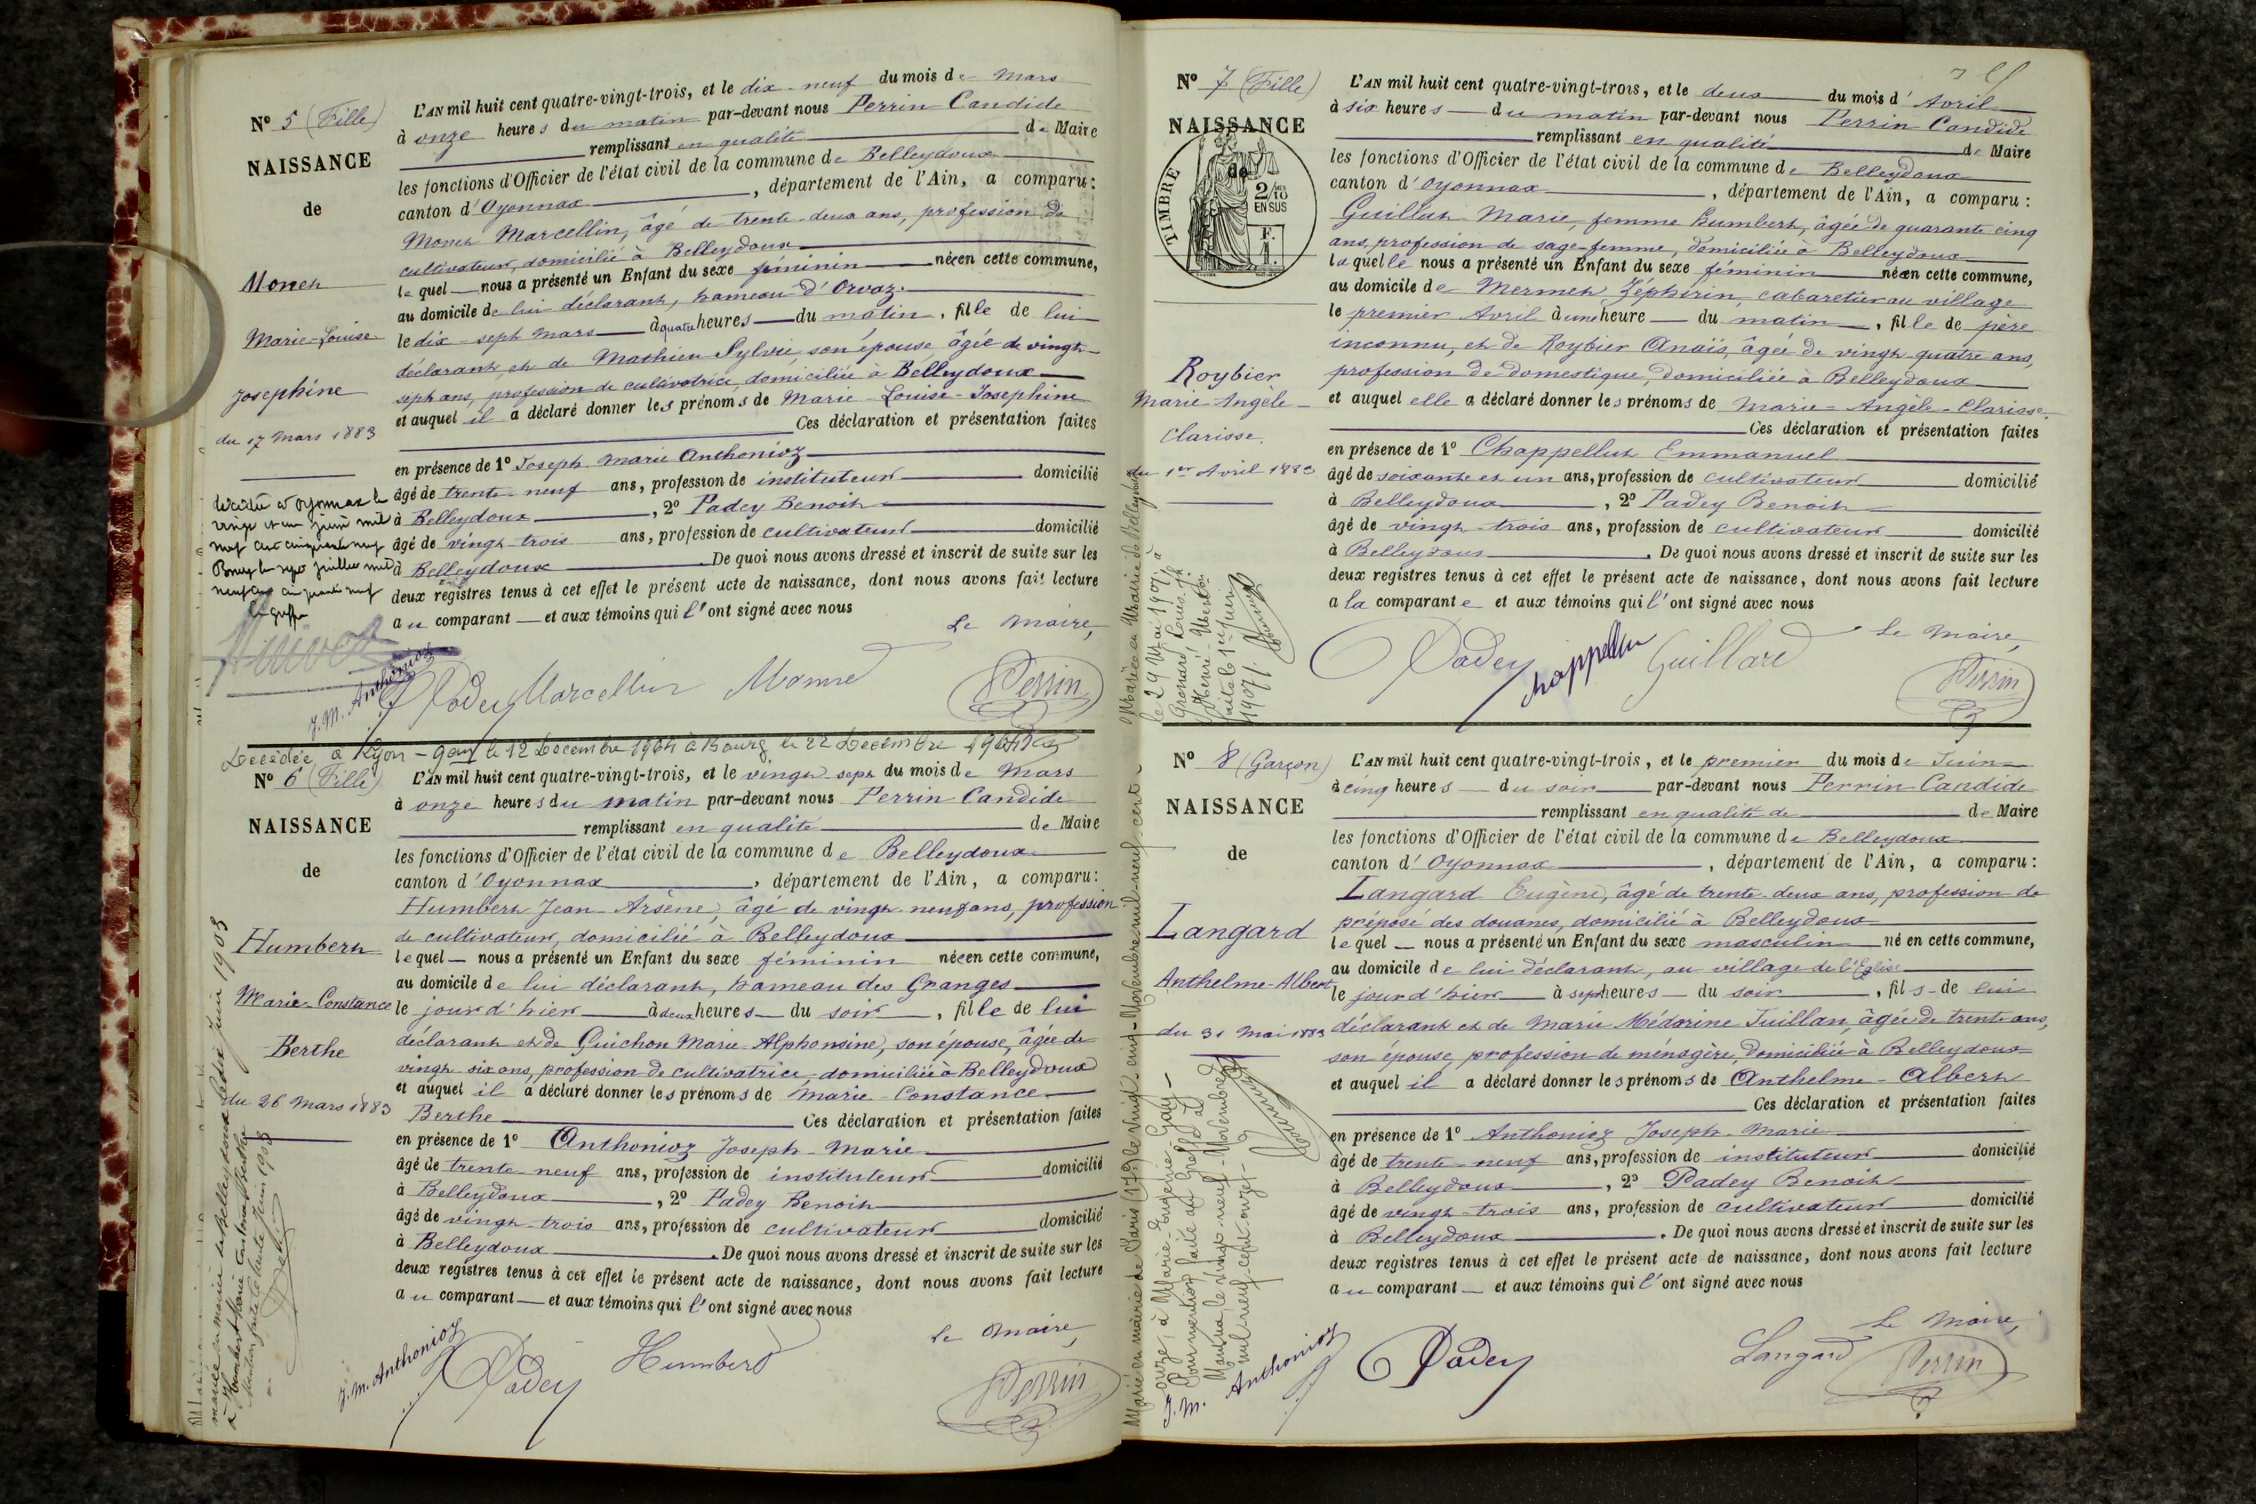 Nº 5 (Fille)
NAISSANCE
de
Monet
Marie-Louise
Josephine
du 17 Mars 1883
décédée à Oyonnax le
vingt et un juin mil
neuf cent cinquante neuf
Bourg le sept juillet mil
neuf cent cinquante neuf
L'AN mil huit cent quatre-vingt-trois, et le dix-neuf du mois de Mars
à onze heures du matin par-devant nous Perrin Candide
remplissant en qualité de Maire
les fonctions d'Officier de l'état civil de la commune de Belleydoux
canton d'Oyonnax, département de l'Ain, a comparu:
Monet Marcellin, âgé de trente-deux ans, profession de
cultivateur, domicilié à Belleydoux
lequel nous a présenté un Enfant du sexe féminin née en cette commune,
au domicile de lui déclarant, hameau d'Orvaz.
le dix-sept Mars à quatre heures du matin, fille de lui
déclarant et de Mathieu Sylvie, son épouse âgée de vingt-
sept ans, profession de cultivatrice, domiciliée à Belleydoux
et auquel il a déclaré donner les prénoms de Marie-Louise-Josephine
Ces déclaration et présentation faites
en présence de 1º Joseph Marie Anthonioz
âgé de trente-neuf ans, profession de instituteur domicilié
à Belleydoux, 2º Padey Benoit
âgé de vingt-trois ans, profession de cultivateur domicilié
à Belleydoux. De quoi nous avons dressé et inscrit de suite sur les
deux registres tenus à cet effet le présent acte de naissance, dont nous avons fait lecture
au comparant et aux témoins qui l'ont signé avec nous
Le Maire,
J. M. Anthonioz Padey Marcellin Monnet Perrin
Décédée à Lyon - 9em le 12 Décembre 1964 à Bourg le 22 Décembre 1964
Nº 6 (Fille)
NAISSANCE
de
Humbert
Marie-Constance
Berthe
du 26 Mars 1883
L'AN mil huit cent quatre-vingt-trois, et le vingt-sept du mois de Mars
à onze heures du matin par-devant nous Perrin Candide
remplissant en qualité de Maire
les fonctions d'Officier de l'état civil de la commune de Belleydoux
canton d'Oyonnax, département de l'Ain, a comparu:
Humbert Jean-Arsène, âgé de vingt-neuf ans, profession
de cultivateur, domicilié à Belleydoux
lequel nous a présenté un Enfant du sexe féminin née en cette commune,
au domicile de lui déclarant, hameau des Granges
le jour d'hier à deux heures du soir, fille de lui
déclarant et de Guichon Marie-Alphonsine, son épouse, âgée de
vingt-six ans, profession de cultivatrice, domiciliée à Belleydoux
et auquel il a déclaré donner les prénoms de Marie-Constance
Berthe Ces déclaration et présentation faites
en présence de 1º Anthonioz Joseph-Marie
âgé de trente-neuf ans, profession de instituteur domicilié
à Belleydoux, 2º Padey Benoit
âgé de vingt-trois ans, profession de cultivateur domicilié
à Belleydoux. De quoi nous avons dressé et inscrit de suite sur les
deux registres tenus à cet effet le présent acte de naissance, dont nous avons fait lecture
au comparant et aux témoins qui l'ont signé avec nous
Le Maire,
J. M. Anthonioz Padey Humbert Perrin
Nº 7 (Fille)
NAISSANCE
de
TIMBRE
2/10
EN SUS
Roybier
Marie-Angèle-
Clarisse.
du 1er Avril 1883
Mariée en Mairie de Belleydoux
le 29 Mai 1907, à
L'AN mil huit cent quatre-vingt-trois, et le deux du mois d'Avril
à six heures du matin par-devant nous Perrin Candide
remplissant en qualité de Maire
les fonctions d'Officier de l'état civil de la commune de Belleydoux
canton d'Oyonnax, département de l'Ain, a comparu:
Guillut Marie, femme Humbert, âgée de quarante cinq
ans, profession de sage-femme, domiciliée à Belleydoux
laquelle nous a présenté un Enfant du sexe féminin née en cette commune,
au domicile de Mermet Zéphirin, cabaretier au village
le premier Avril à une heure du matin, fille de père
inconnu, et de Roybier Anaïs, âgée de vingt-quatre ans,
profession de domestique, domiciliée à Belleydoux
et auquel elle a déclaré donner les prénoms de Marie-Angèle-Clarisse.
Ces déclaration et présentation faites
en présence de 1º Chappellut Emmanuel
âgé de soixante et un ans, profession de cultivateur domicilié
à Belleydoux, 2º Padey Benoit
âgé de vingt-trois ans, profession de cultivateur domicilié
à Belleydoux. De quoi nous avons dressé et inscrit de suite sur les
deux registres tenus à cet effet le présent acte de naissance, dont nous avons fait lecture
a la comparante et aux témoins qui l'ont signé avec nous
Le Maire,
Padey Chappellu Guillard Perrin
Nº 8 (Garçon)
NAISSANCE
de
Langard
Anthelme-Albert
du 31 Mai 1883
Marié en mairie de Paris (17e) le vingt-cinq-Novembre mil-neuf-cent-
onze, à Marie-Eugénie Gady-
L'AN mil huit cent quatre-vingt-trois, et le premier du mois de Juin
à cinq heures du soir par-devant nous Perrin Candide
remplissant en qualité de de Maire
les fonctions d'Officier de l'état civil de la commune de Belleydoux
canton d'Oyonnax, département de l'Ain, a comparu:
Langard Eugène, âgé de trente-deux ans, profession de
préposé des douanes, domicilié à Belleydoux
lequel nous a présenté un Enfant du sexe masculin né en cette commune,
au domicile de lui déclarant, au village de l'Eglise
le jour d'hier à sept heures du soir, fils de lui
déclarant et de Marie Médorine Tuillan, âgée de trente ans,
son épouse, profession de ménagère, domiciliée à Belleydoux
et auquel il a déclaré donner les prénoms de Anthelme-Albert
Ces déclaration et présentation faites
en présence de 1º Anthonioz Joseph-Marie
âgé de trente-neuf ans, profession de instituteur domicilié
à Belleydoux, 2º Padey Benoit
âgé de vingt-trois ans, profession de cultivateur domicilié
à Belleydoux. De quoi nous avons dressé et inscrit de suite sur les
deux registres tenus à cet effet le présent acte de naissance, dont nous avons fait lecture
au comparant et aux témoins qui l'ont signé avec nous
Le Maire,
J. M. Anthonioz Padey Langard Perrin